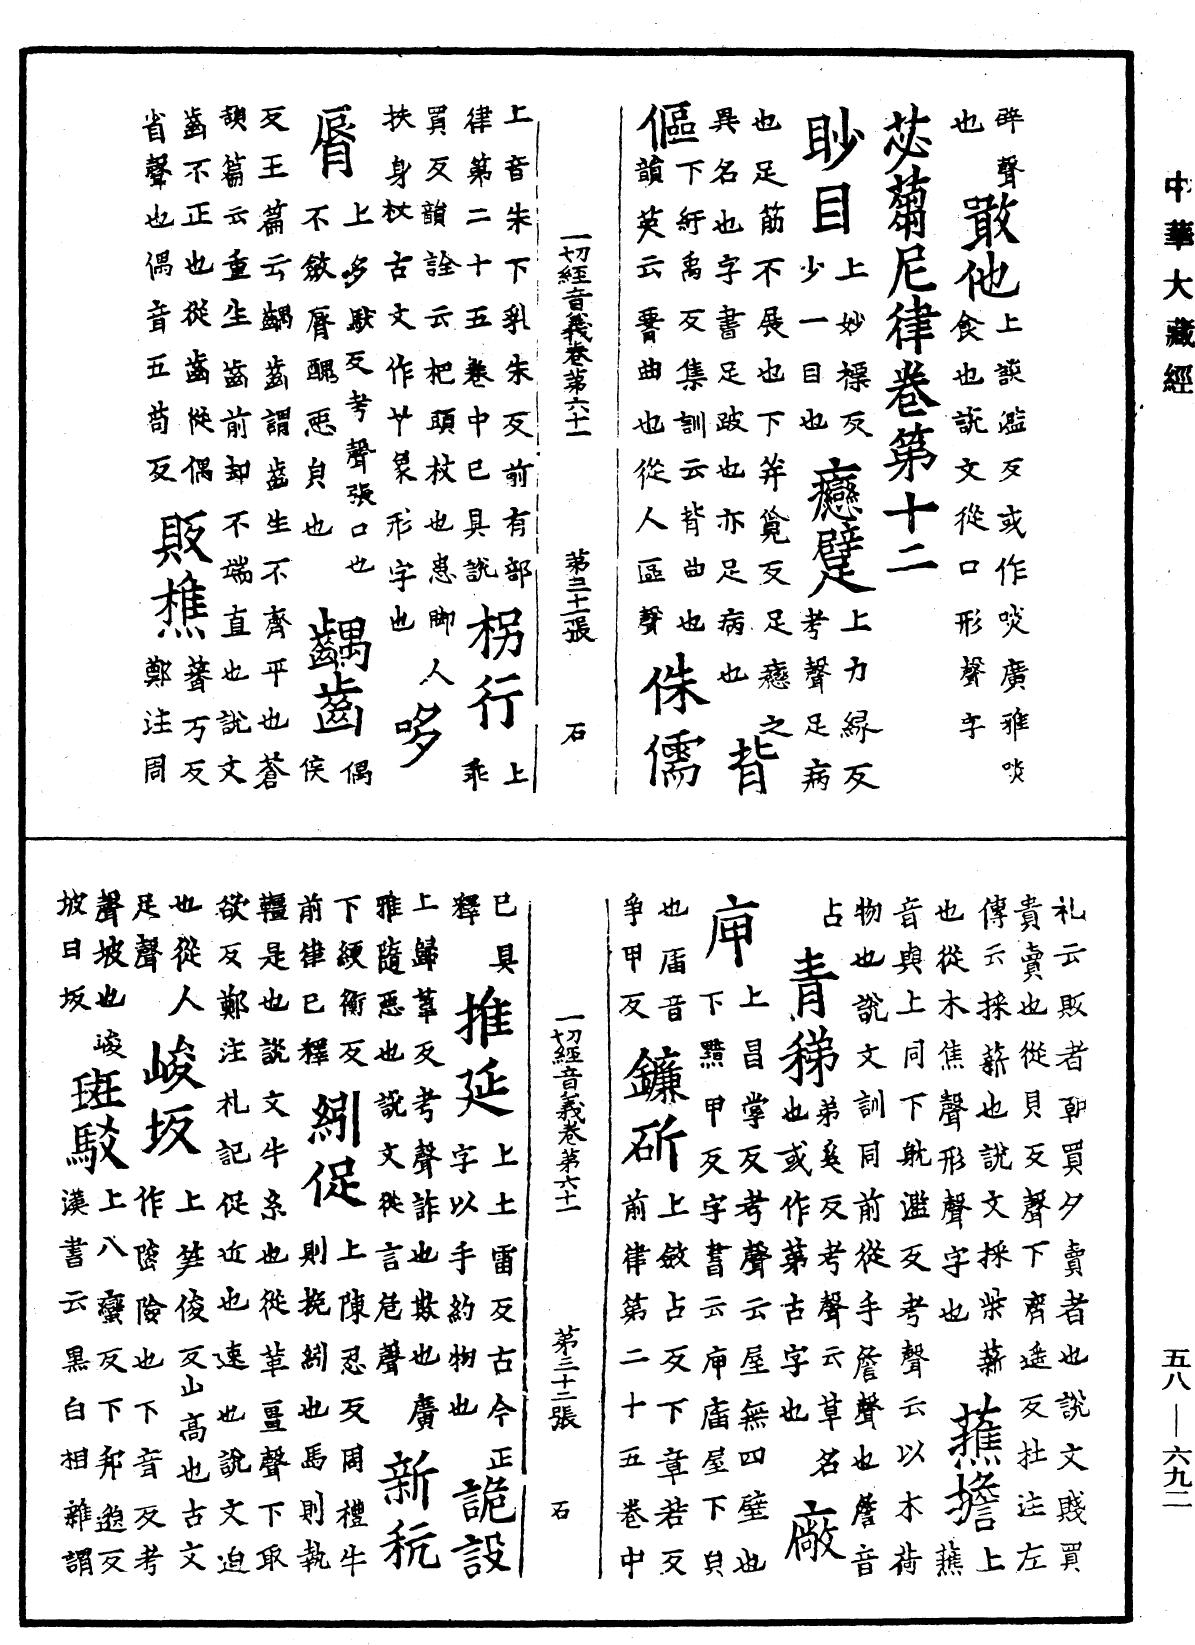 中華大藏經
醉聲
也
敢他
上談濫反或作啖廣雅啖
食也說文從口形聲字
苾蒭尼律卷第十二
眇目
上妙褾反
少一目也
癋躄
上力緣反
考聲足病
也足筋不展也下并覓反足癋之
異名也字書足跛也亦足病也
背
傴
下紆禹反集訓云背曲也
韻英云瘠曲也從人區聲
侏儒
一切經音義卷第六十一
第三十一張
石
上音朱下乳朱反前有部
律第二十五卷中已具說
枴行
上
乖
買反韻詮云杷頭杖也患脚人
扶身杖古文作𠦬象形字也
哆
脣
上多馱反考聲張口也
不斂脣醜惡皃也
齵齒
偶
侯
反王篇云齵齒謂齒生不齊平也蒼
頡篇云重生齒前却不端直也說文
齒不正也從齒從偶
省聲也偶音五苟反
販樵
䇶万反
鄭注周
礼云販者朝買夕賣者也說文賤買
貴賣也從貝反聲下齊遥反杜注左
傳云採薪也說文採柴薪
也從木焦聲形聲字也
蕉擔
上
蕉
音與上同下躭濫反考聲云以木荷
物也說文訓同前從手詹聲也詹音
占
青稊
弟奚反考聲云草名
也或作苐古字也
廠
庘
上昌掌反考聲云屋無四壁也
下黯甲反字書云庘庮屋下皃
也庮音
爭甲反
鐮斫
上斂占反下章若反
前律第二十五卷中
一切經音義卷第六十一
第三十二張
石
已具
釋
推延
上土雷反古今正
字以手約物也
詭設
上歸葦反考聲詐也欺也廣
雅隨惡也說文從言危聲
新秔
下緶衡反
前律已釋
紖促
上陳忍反周禮牛
則挽紖也馬則執
韁是也說文牛系也從革畺聲下取
欲反鄭注礼記促近也速也說文迫
也從人
足聲
峻坂
上笋俊反山高也古文
作陖險也下音反考
聲坡也峻
坡曰坂
斑駁
上八蠻反下邦邈反
漢書云黑白相雜謂
五八—六九二